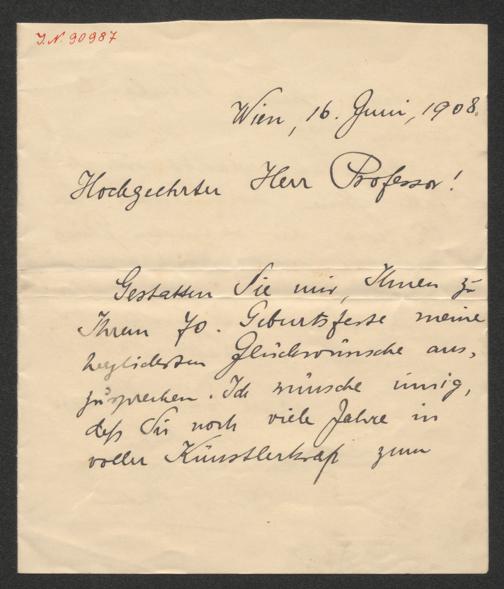 J.N. 90987
Wien, 16. Juni, 1908.
Hochgeehrter Herr Professor!
Gestatten Sie mir, Ihnen zu
Ihrem 70. Geburtsfeste meine
herzlichsten Glückwünsche aus,
zusprechen. Ich wünsche innig,
daß Sie noch viele Jahre in
voller Künstlerkraft zum